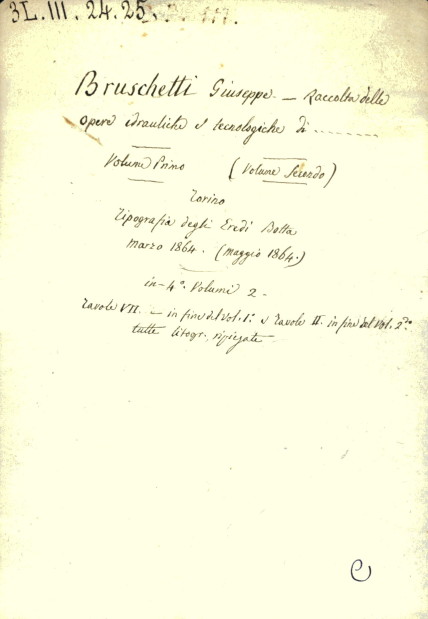 3L.III.24.25.
Bruschetti Giuseppe. — Raccolta delle
opere idrauliche e tecnologiche di ........
Volume Primo (Volume Secondo)
Torino
Tipografia degli Eredi Botta
marzo 1864. (maggio 1864.)
in-4°. Volumi 2 -
Tavole VII. — in fine del Vol. 1° e Tavole II. in fine del Vol. 2do
tutte litogr. ripiegate